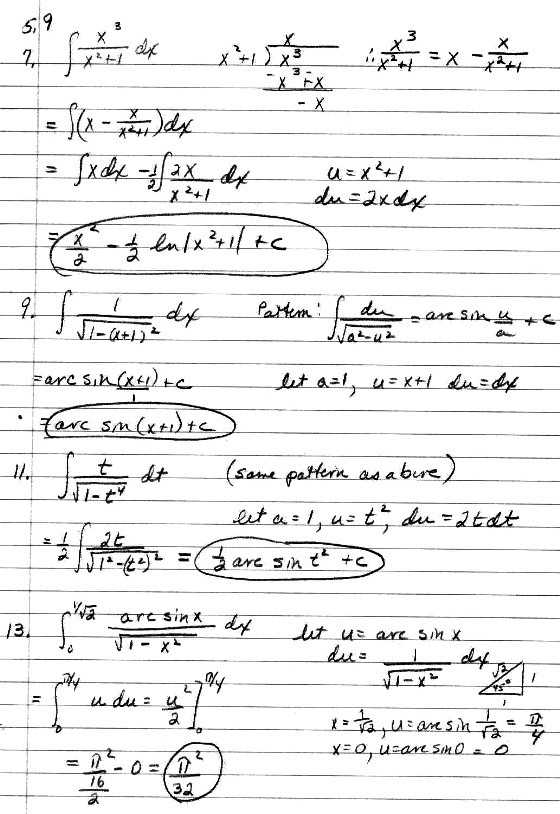 5,9
7. ∫ x³/(x²+1) dx    x²+1 ) x³    x    ∴ x³/(x²+1) = x − x/(x²+1)
−x³ + x
−x
= ∫(x − x/(x²+1))dx
= ∫x dx − 1/2 ∫ 2x/(x²+1) dx    u = x²+1
du = 2x dx
= x²/2 − 1/2 ln|x²+1| + c
9. ∫ 1/√(1−(x+1)²) dx    Pattern: ∫ du/√(a²−u²) = arc sin u/a + c
= arc sin (x+1)/1 + c    let a=1, u = x+1 du = dx
= arc sin (x+1) + c
11. ∫ t/√(1−t⁴) dt    (same pattern as above)
let a = 1, u = t², du = 2t dt
= 1/2 ∫ 2t/√(1²−(t²)²) = 1/2 arc sin t² + c
13. ∫₀^(1/√2) arc sin x/√(1−x²) dx    let u = arc sin x
du = 1/√(1−x²) dx    √2 45° 1 1
= ∫₀^(π/4) u du = u²/2 ]₀^(π/4)    x = 1/√2, u = arc sin 1/√2 = π/4
x = 0, u = arc sin 0 = 0
= π²/16/2 − 0 = π²/32